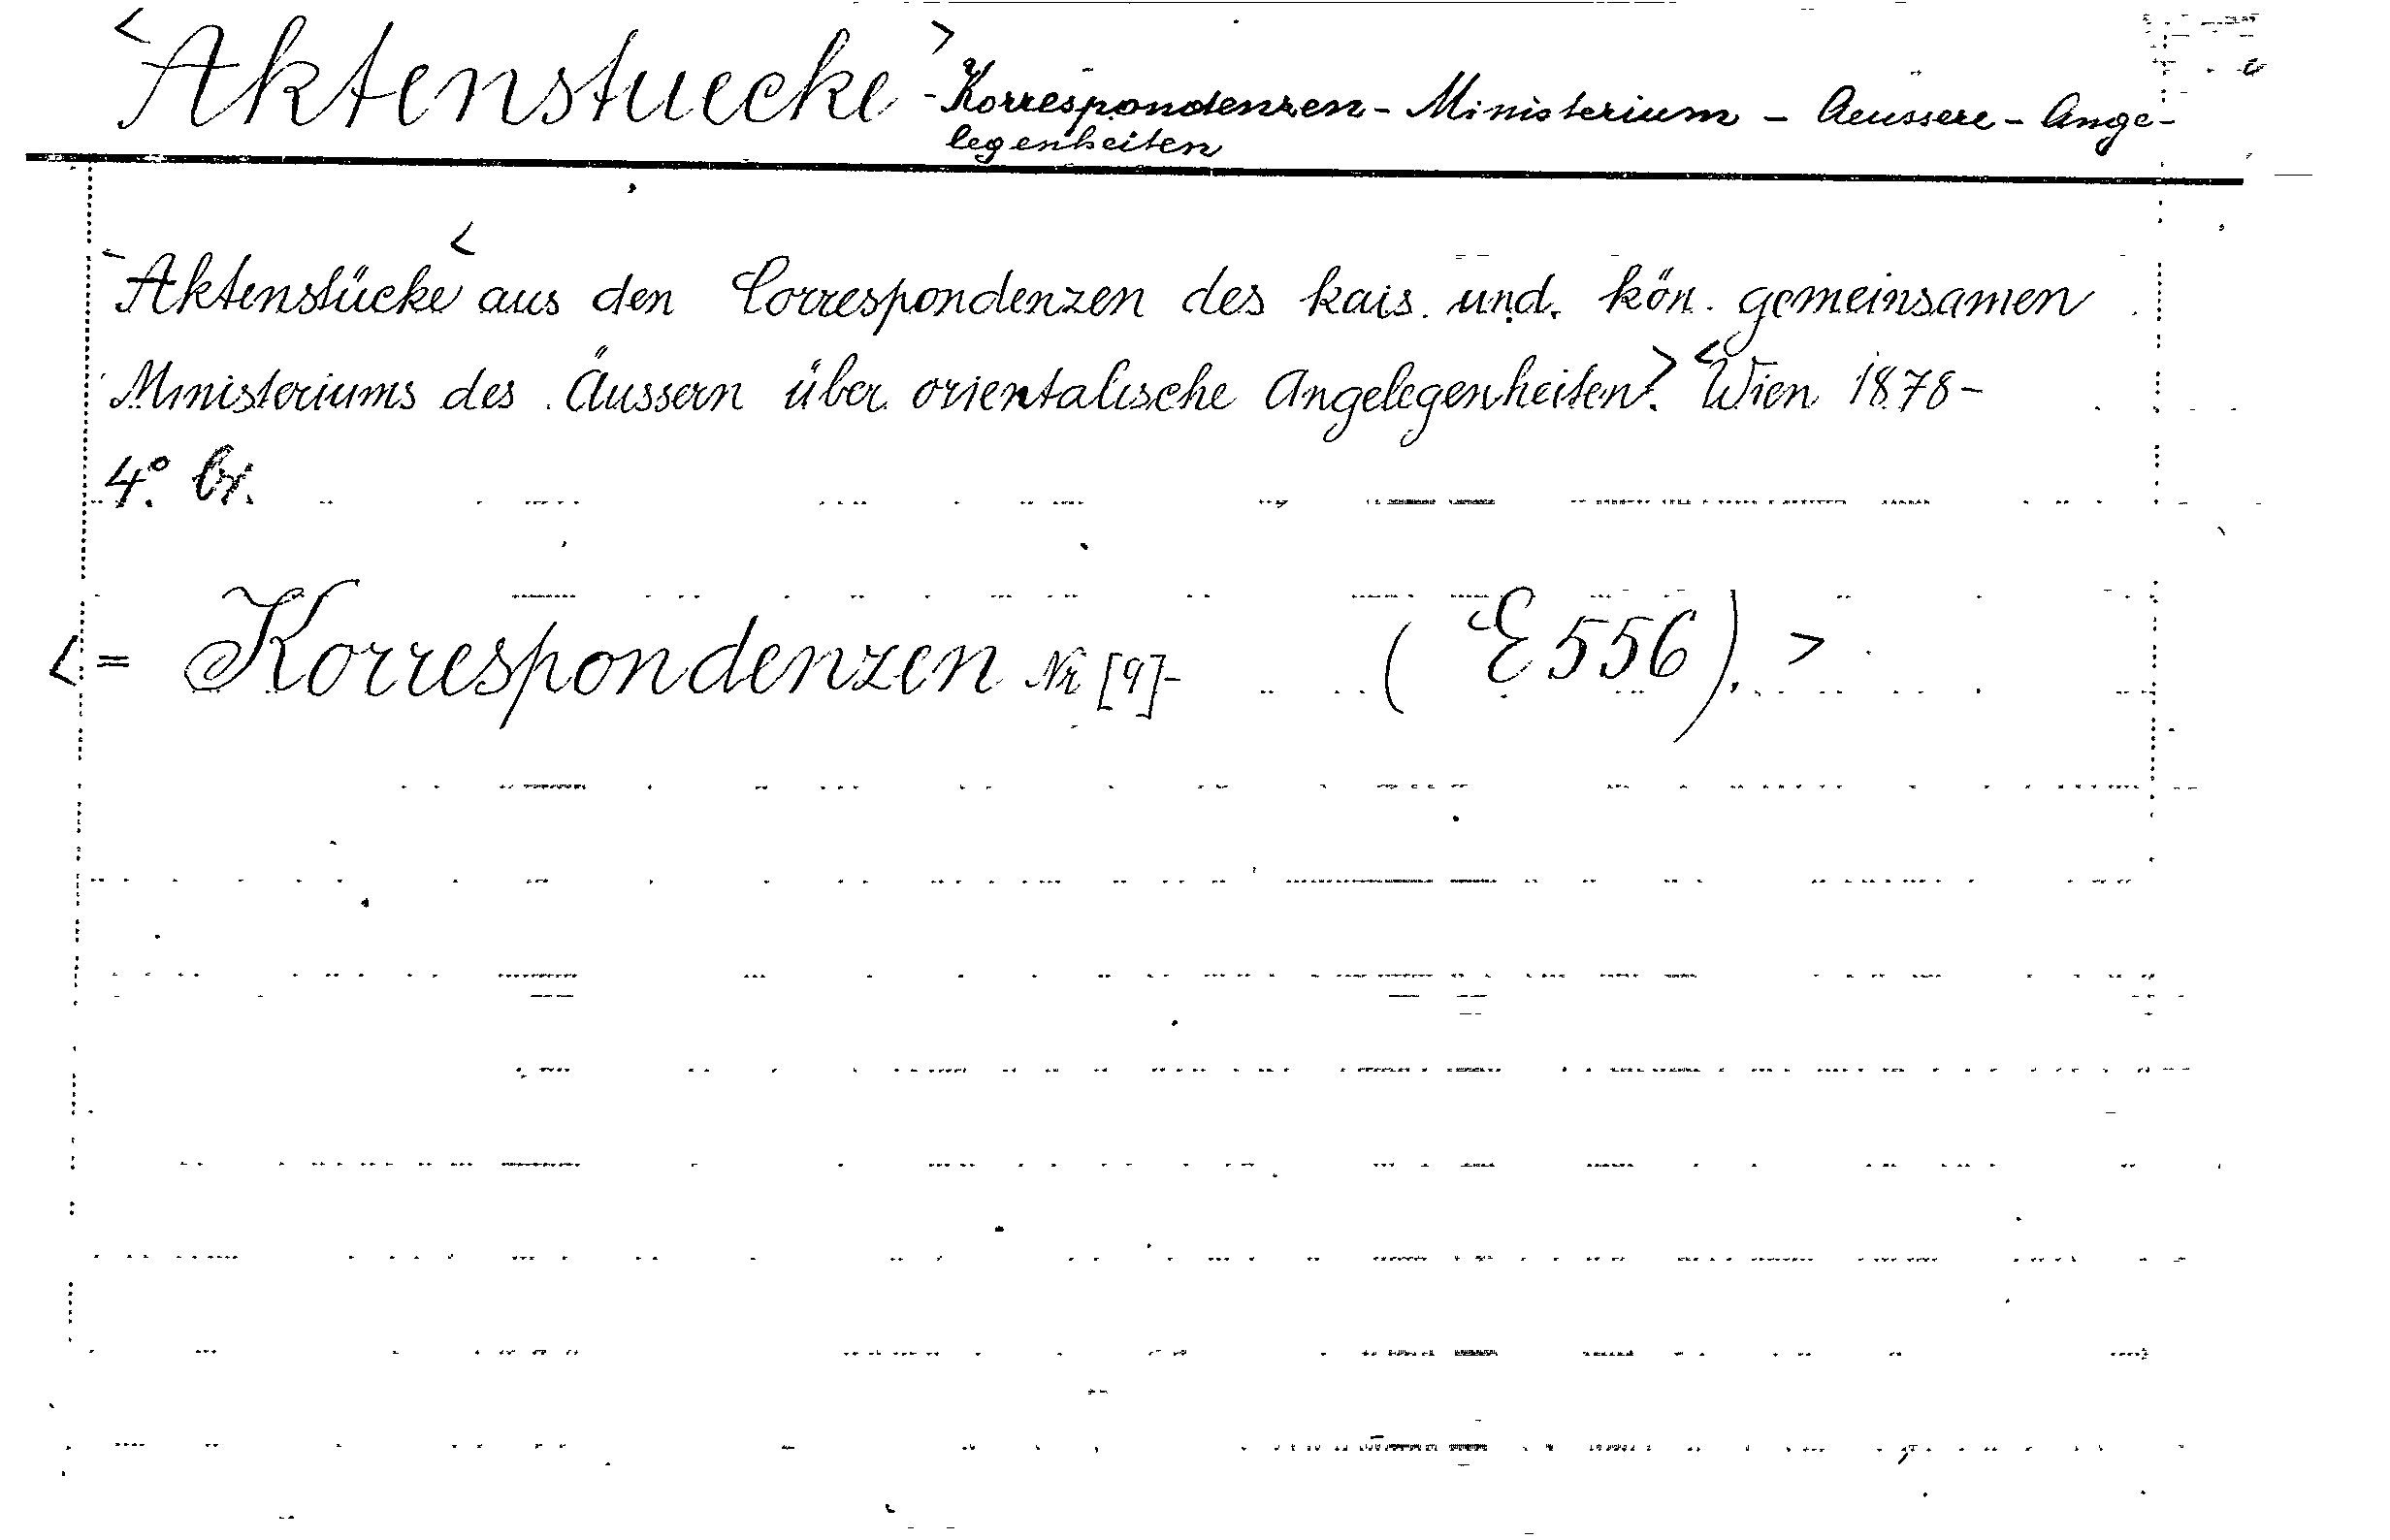 <Aktenstuecke>-Korrespondenzen-Ministerium-Aeussere-Ange-
legenheiten
Aktenstücke< aus den Correspondenzen des kais. und. kön. gemeinsamen
Ministeriums des Äussern über orientalische Angelegenheiten>. <Wien 1878-
4°. br.
<= Korrespondenzen Nr [9]- (E 556).>